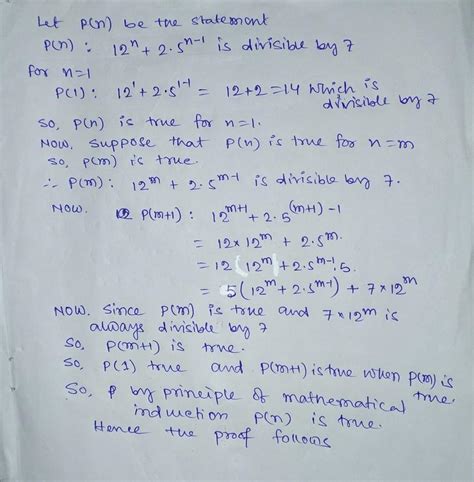 Let P(n) be the statement
P(n) : 12ⁿ + 2·5ⁿ⁻¹ is divisible by 7
for n=1
P(1) : 12¹ + 2·5¹⁻¹ = 12+2 = 14 which is divisible by 7
So, P(n) is true for n=1.
Now, suppose that P(n) is true for n=m
So, P(m) is true.
∴ P(m) : 12ᵐ + 2·5ᵐ⁻¹ is divisible by 7.
Now. P(m+1) : 12ᵐ⁺¹ + 2·5⁽ᵐ⁺¹⁾⁻¹
= 12×12ᵐ + 2·5ᵐ.
= 12(12ᵐ) + 2·5ᵐ⁻¹·5.
= 5(12ᵐ + 2·5ᵐ⁻¹) + 7×12ᵐ
Now. Since P(m) is true and 7×12ᵐ is
always divisible by 7
So, P(m+1) is true.
So, P(1) true and P(m+1) is true when P(m) is true.
So, by principle of mathematical
induction P(n) is true.
Hence the proof follows